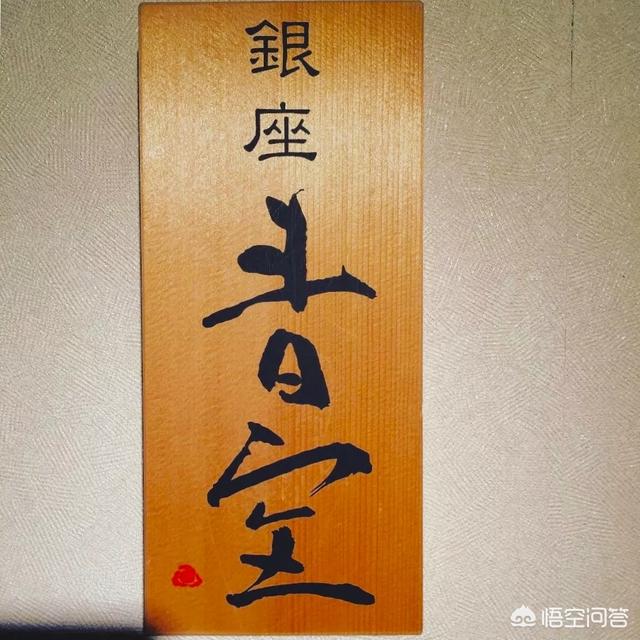 銀座青空
悟空问答